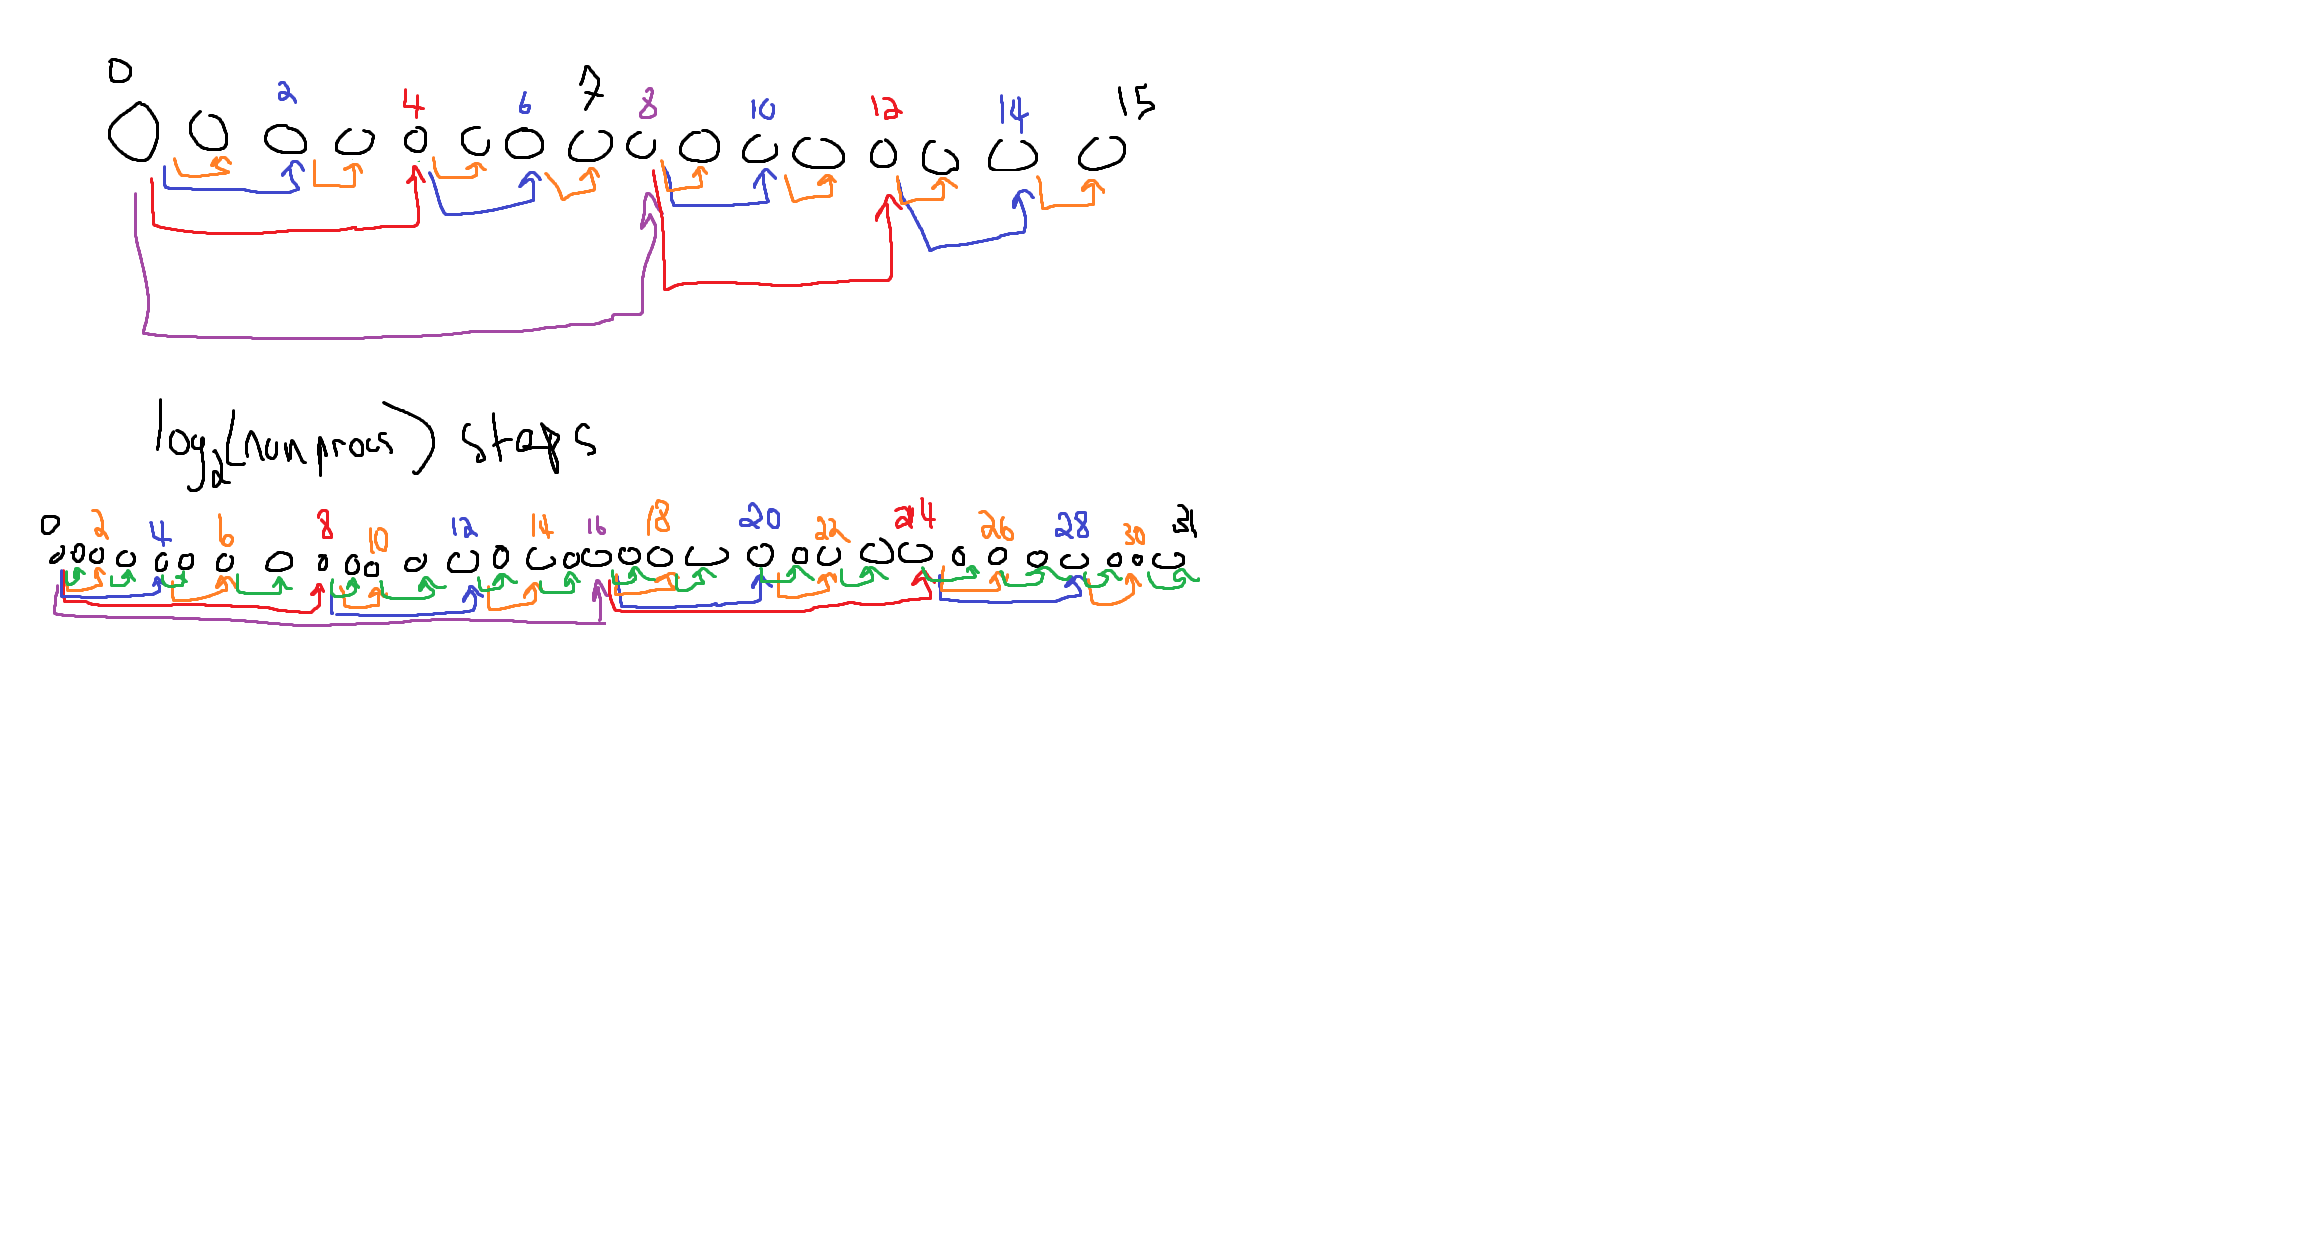 0 2 4 6 7 8 10 12 14 15
log2(numprocs) steps
0 2 4 6 8 10 12 14 16 18 20 22 24 26 28 30 31